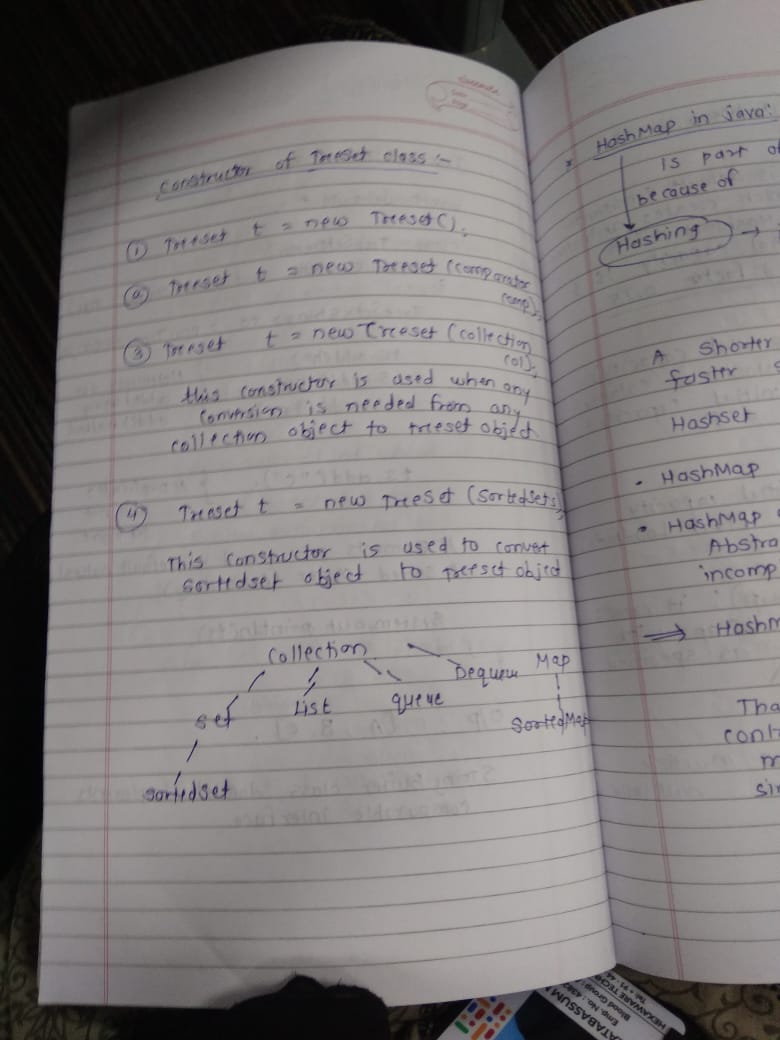 Constructor of Treeset class :-
① Treeset t = new Treeset();
② Treeset t = new Treeset (comparator
comp);
③ Treeset t = new Treeset (collection
col);
this constructor is used when any
conversion is needed from any
collection object to treeset object
④ Treeset t = new TreeSet (sortedsets);
This constructor is used to convert
sortedset object to treeset object
Collection
Set List queue Dequeue Map
sortedset SortedMap
* HashMap in java:
is part of
because of
Hashing →
A Shorter
faster
Hashset
• HashMap
• HashMap
Abstra
incomp
⇒ Hashm
Tha
cont
m
sin
TABASSUM
Emp. No.:
Blood Group:
HEXAWARE TEC
Tel + 91-44